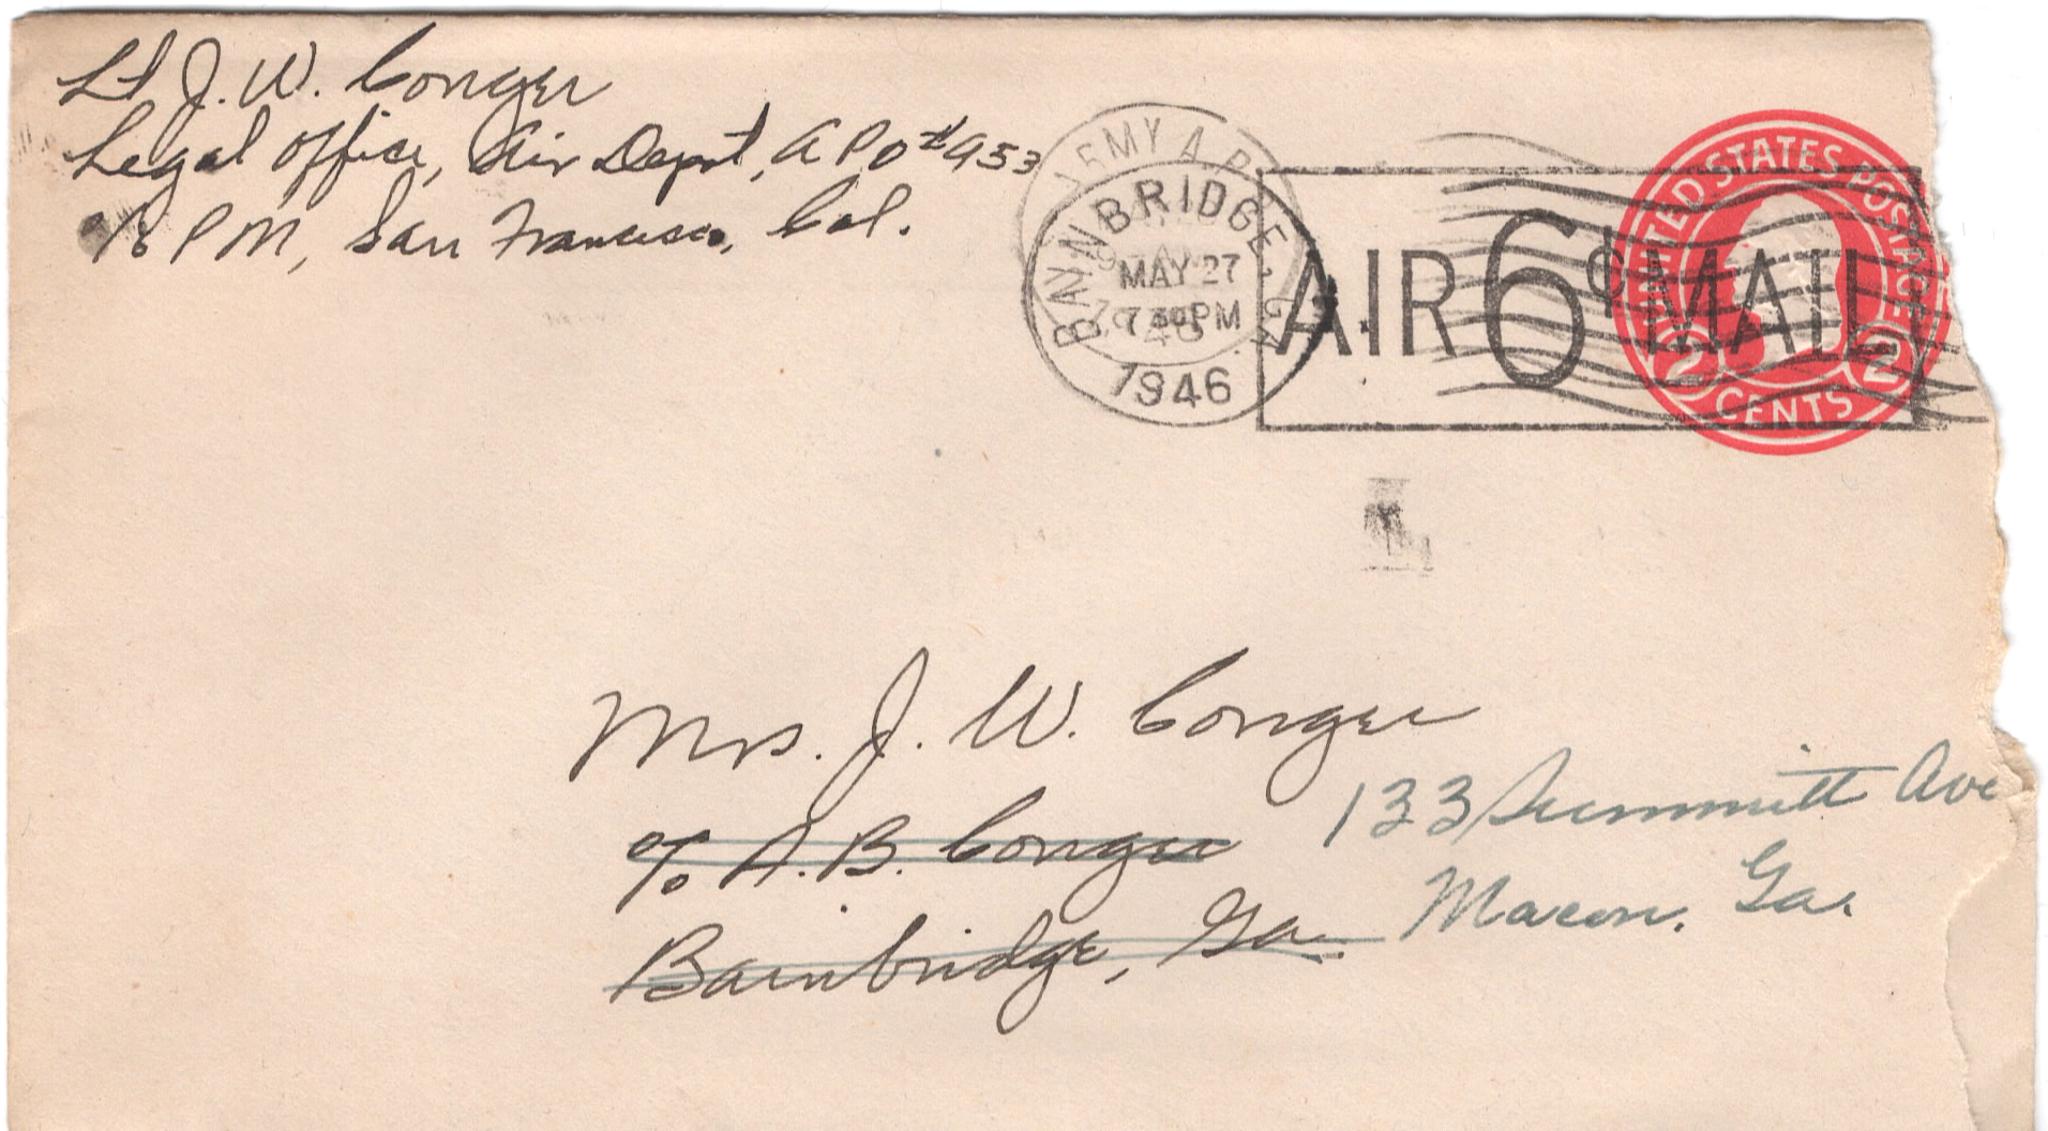 Lt J. W. Conger
Legal Office, Air Depot, APO #953
c/o PM, San Francisco, Cal.
ARMY A.P.
BAINBRIDGE, GA.
MAY 27
7 30 PM
1946
AIR 6¢ MAIL
UNITED STATES POSTAGE
2 2
CENTS
Mrs. J. W. Conger
c/o A. B. Conger
Bainbridge, Ga.
133 Summitt Ave
Macon, Ga.